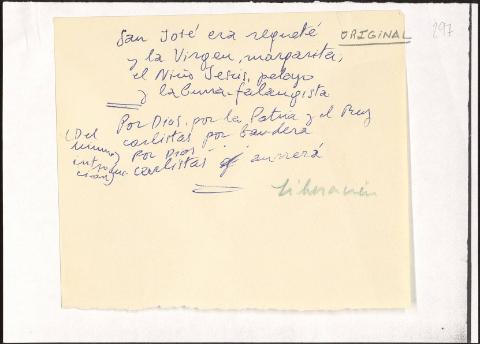 San José era requeté
y la Virgen, margarita,
el Niño Jesús, pelayo
y la burra falangista
Por Dios, por la Patria y el Rey
carlistas por bandera
Por Dios
carlistas aurrerá
(Del
himno
ORIGINAL
297
Liberación